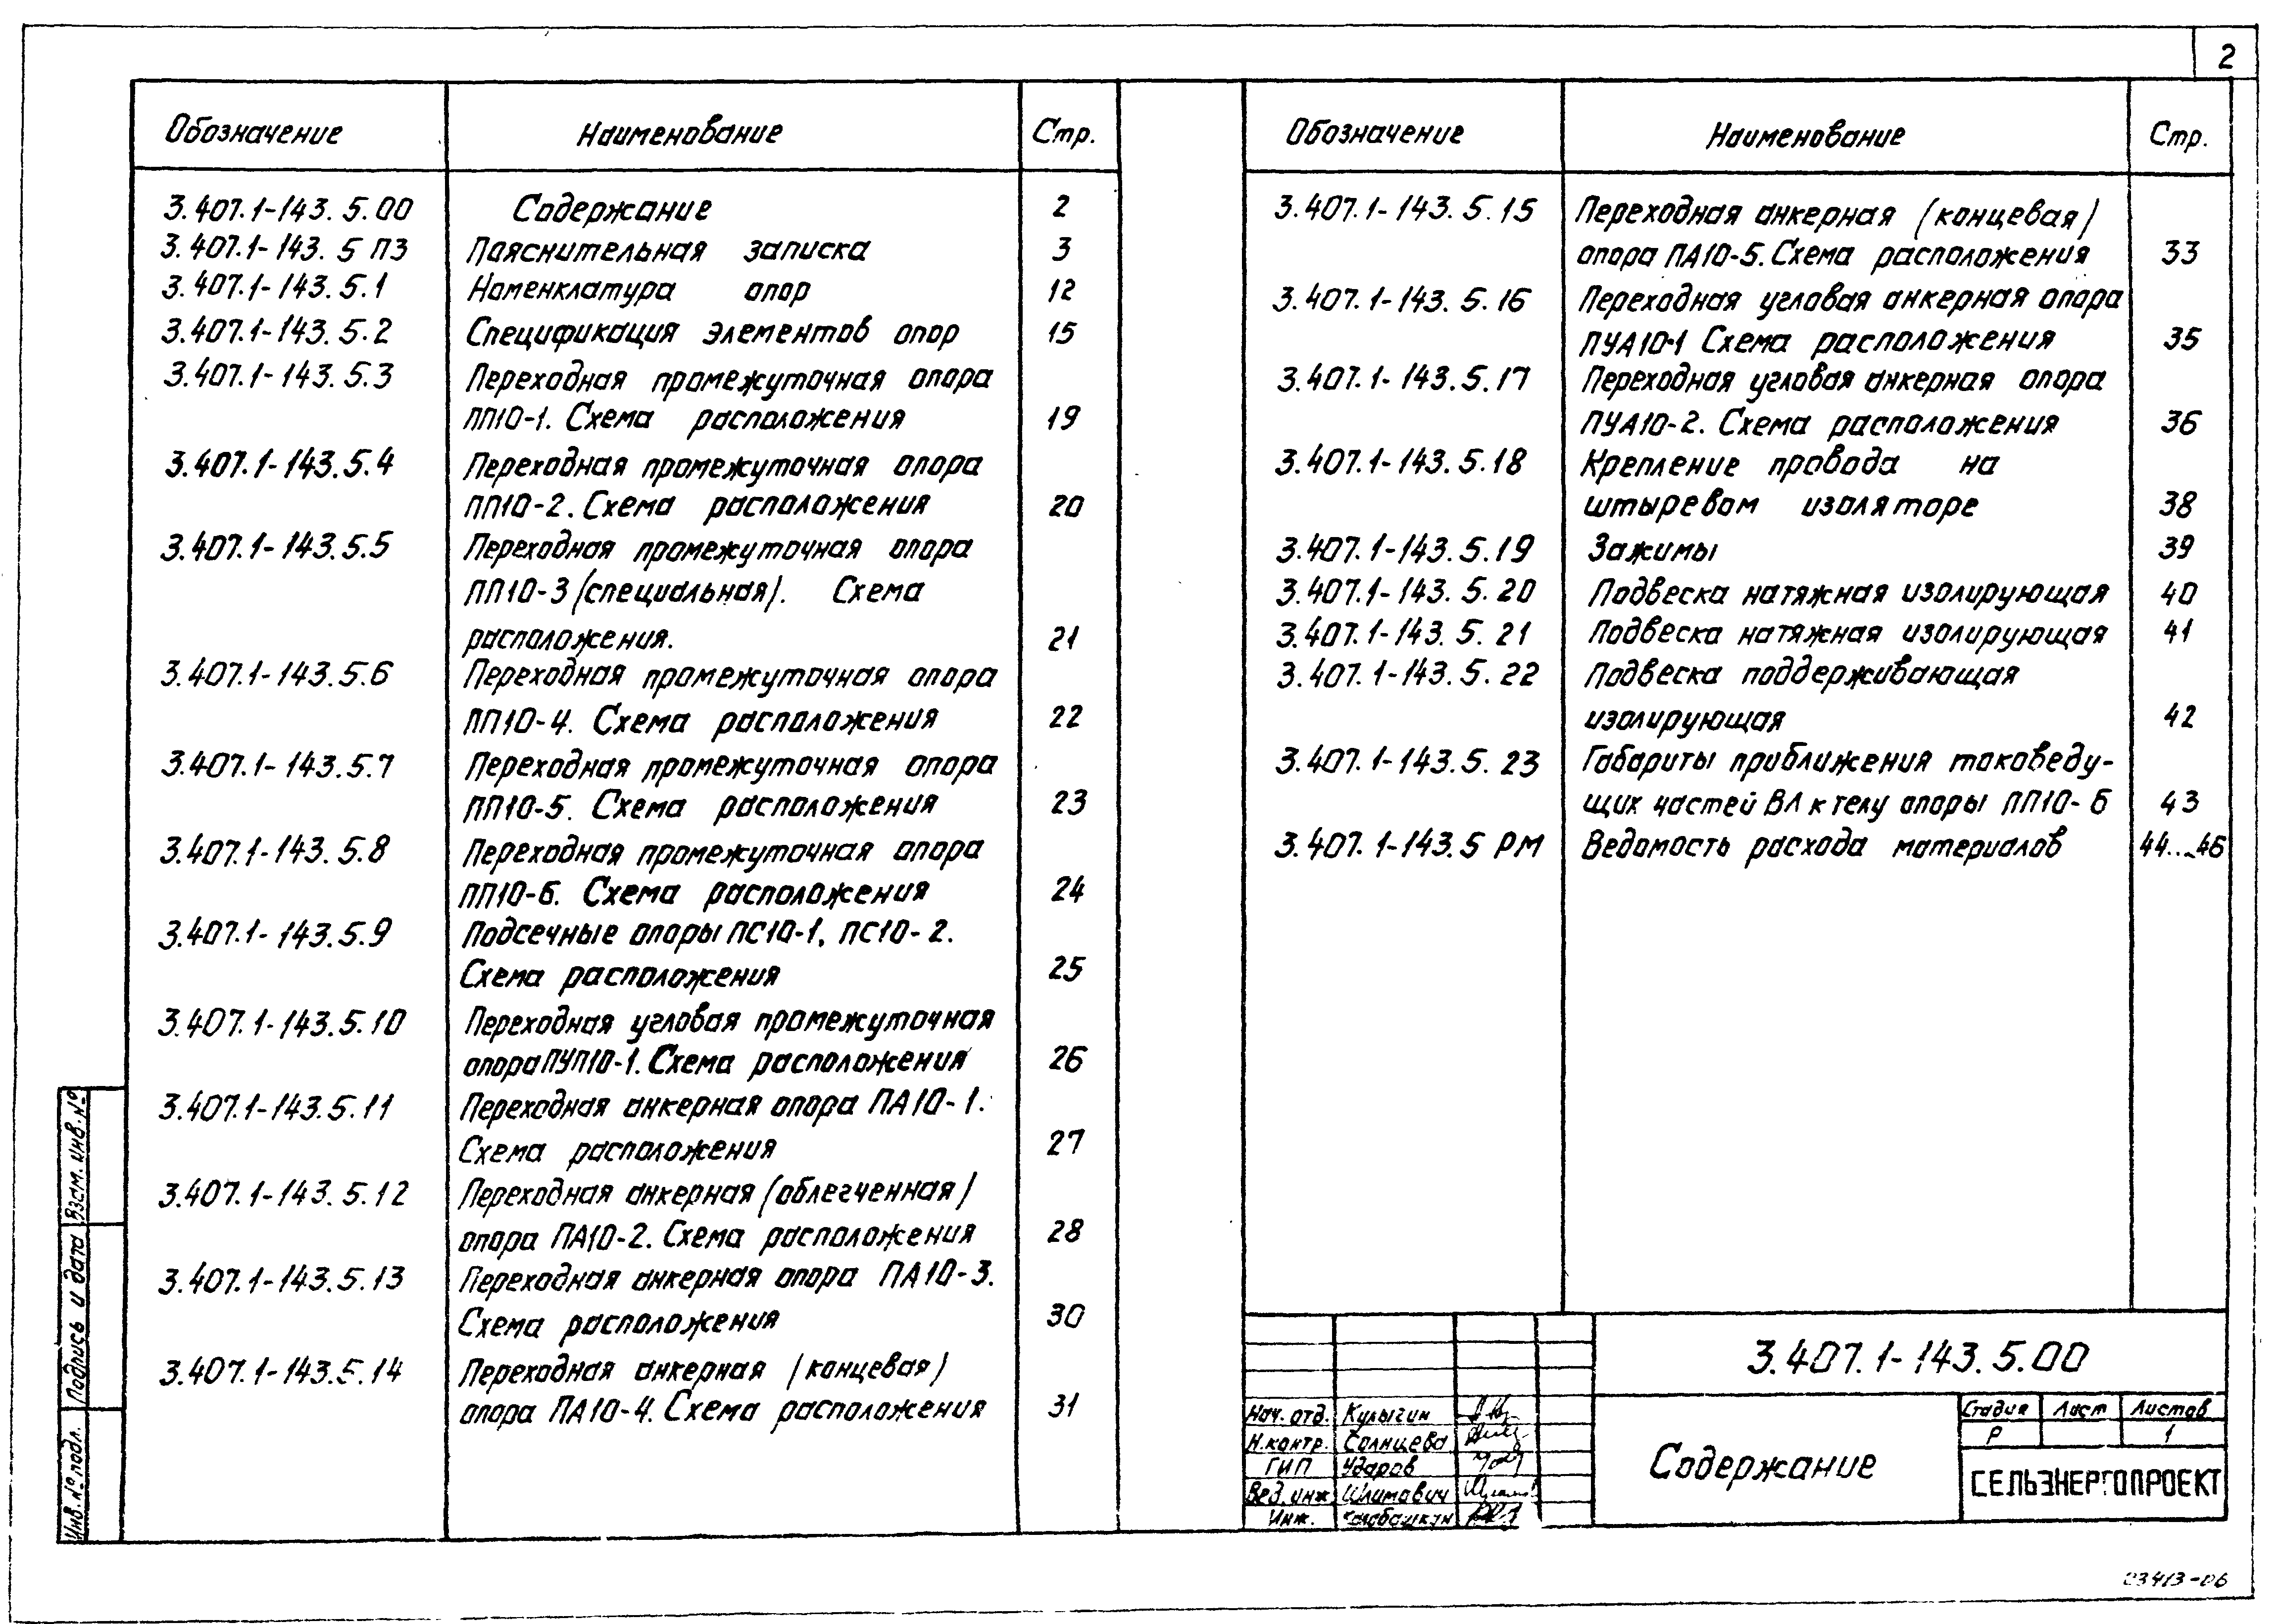 2
Обозначение Наименование Стр.
3.407.1-143.5.00 Содержание 2
3.407.1-143.5 ПЗ Пояснительная записка 3
3.407.1-143.5.1 Номенклатура опор 12
3.407.1-143.5.2 Спецификация элементов опор 15
3.407.1-143.5.3 Переходная промежуточная опора
ПП10-1. Схема расположения 19
3.407.1-143.5.4 Переходная промежуточная опора
ПП10-2. Схема расположения 20
3.407.1-143.5.5 Переходная промежуточная опора
ПП10-3 (специальная). Схема
расположения. 21
3.407.1-143.5.6 Переходная промежуточная опора
ПП10-4. Схема расположения 22
3.407.1-143.5.7 Переходная промежуточная опора
ПП10-5. Схема расположения 23
3.407.1-143.5.8 Переходная промежуточная опора
ПП10-6. Схема расположения 24
3.407.1-143.5.9 Подсечные опоры ПС10-1, ПС10-2.
Схема расположения 25
3.407.1-143.5.10 Переходная угловая промежуточная
опора ПУП10-1. Схема расположения 26
3.407.1-143.5.11 Переходная анкерная опора ПА10-1.
Схема расположения 27
3.407.1-143.5.12 Переходная анкерная (облегченная)
опора ПА10-2. Схема расположения 28
3.407.1-143.5.13 Переходная анкерная опора ПА10-3.
Схема расположения 30
3.407.1-143.5.14 Переходная анкерная (концевая)
опора ПА10-4. Схема расположения 31
Обозначение Наименование Стр.
3.407.1-143.5.15 Переходная анкерная (концевая)
опора ПА10-5. Схема расположения 33
3.407.1-143.5.16 Переходная угловая анкерная опора
ПУА10-1 Схема расположения 35
3.407.1-143.5.17 Переходная угловая анкерная опора
ПУА10-2. Схема расположения 36
3.407.1-143.5.18 Крепление провода на
штыревом изоляторе 38
3.407.1-143.5.19 Зажимы 39
3.407.1-143.5.20 Подвеска натяжная изолирующая 40
3.407.1-143.5.21 Подвеска натяжная изолирующая 41
3.407.1-143.5.22 Подвеска поддерживающая
изолирующая 42
3.407.1-143.5.23 Габариты приближения токоведу-
щих частей ВЛ к телу опоры ПП10-6 43
3.407.1-143.5 РМ Ведомость расхода материалов 44...46
Взам. инв. №
Подпись и дата
Инв. № подл.
3.407.1-143.5.00
Нач. отд. Кулыгин
Н.контр. Солнцева
ГИП Ударов
Вед. инж. Шлимович
Инж. Калабашкин
Содержание
Стадия Лист Листов
Р 1
СЕЛЬЭНЕРГОПРОЕКТ
03413-06